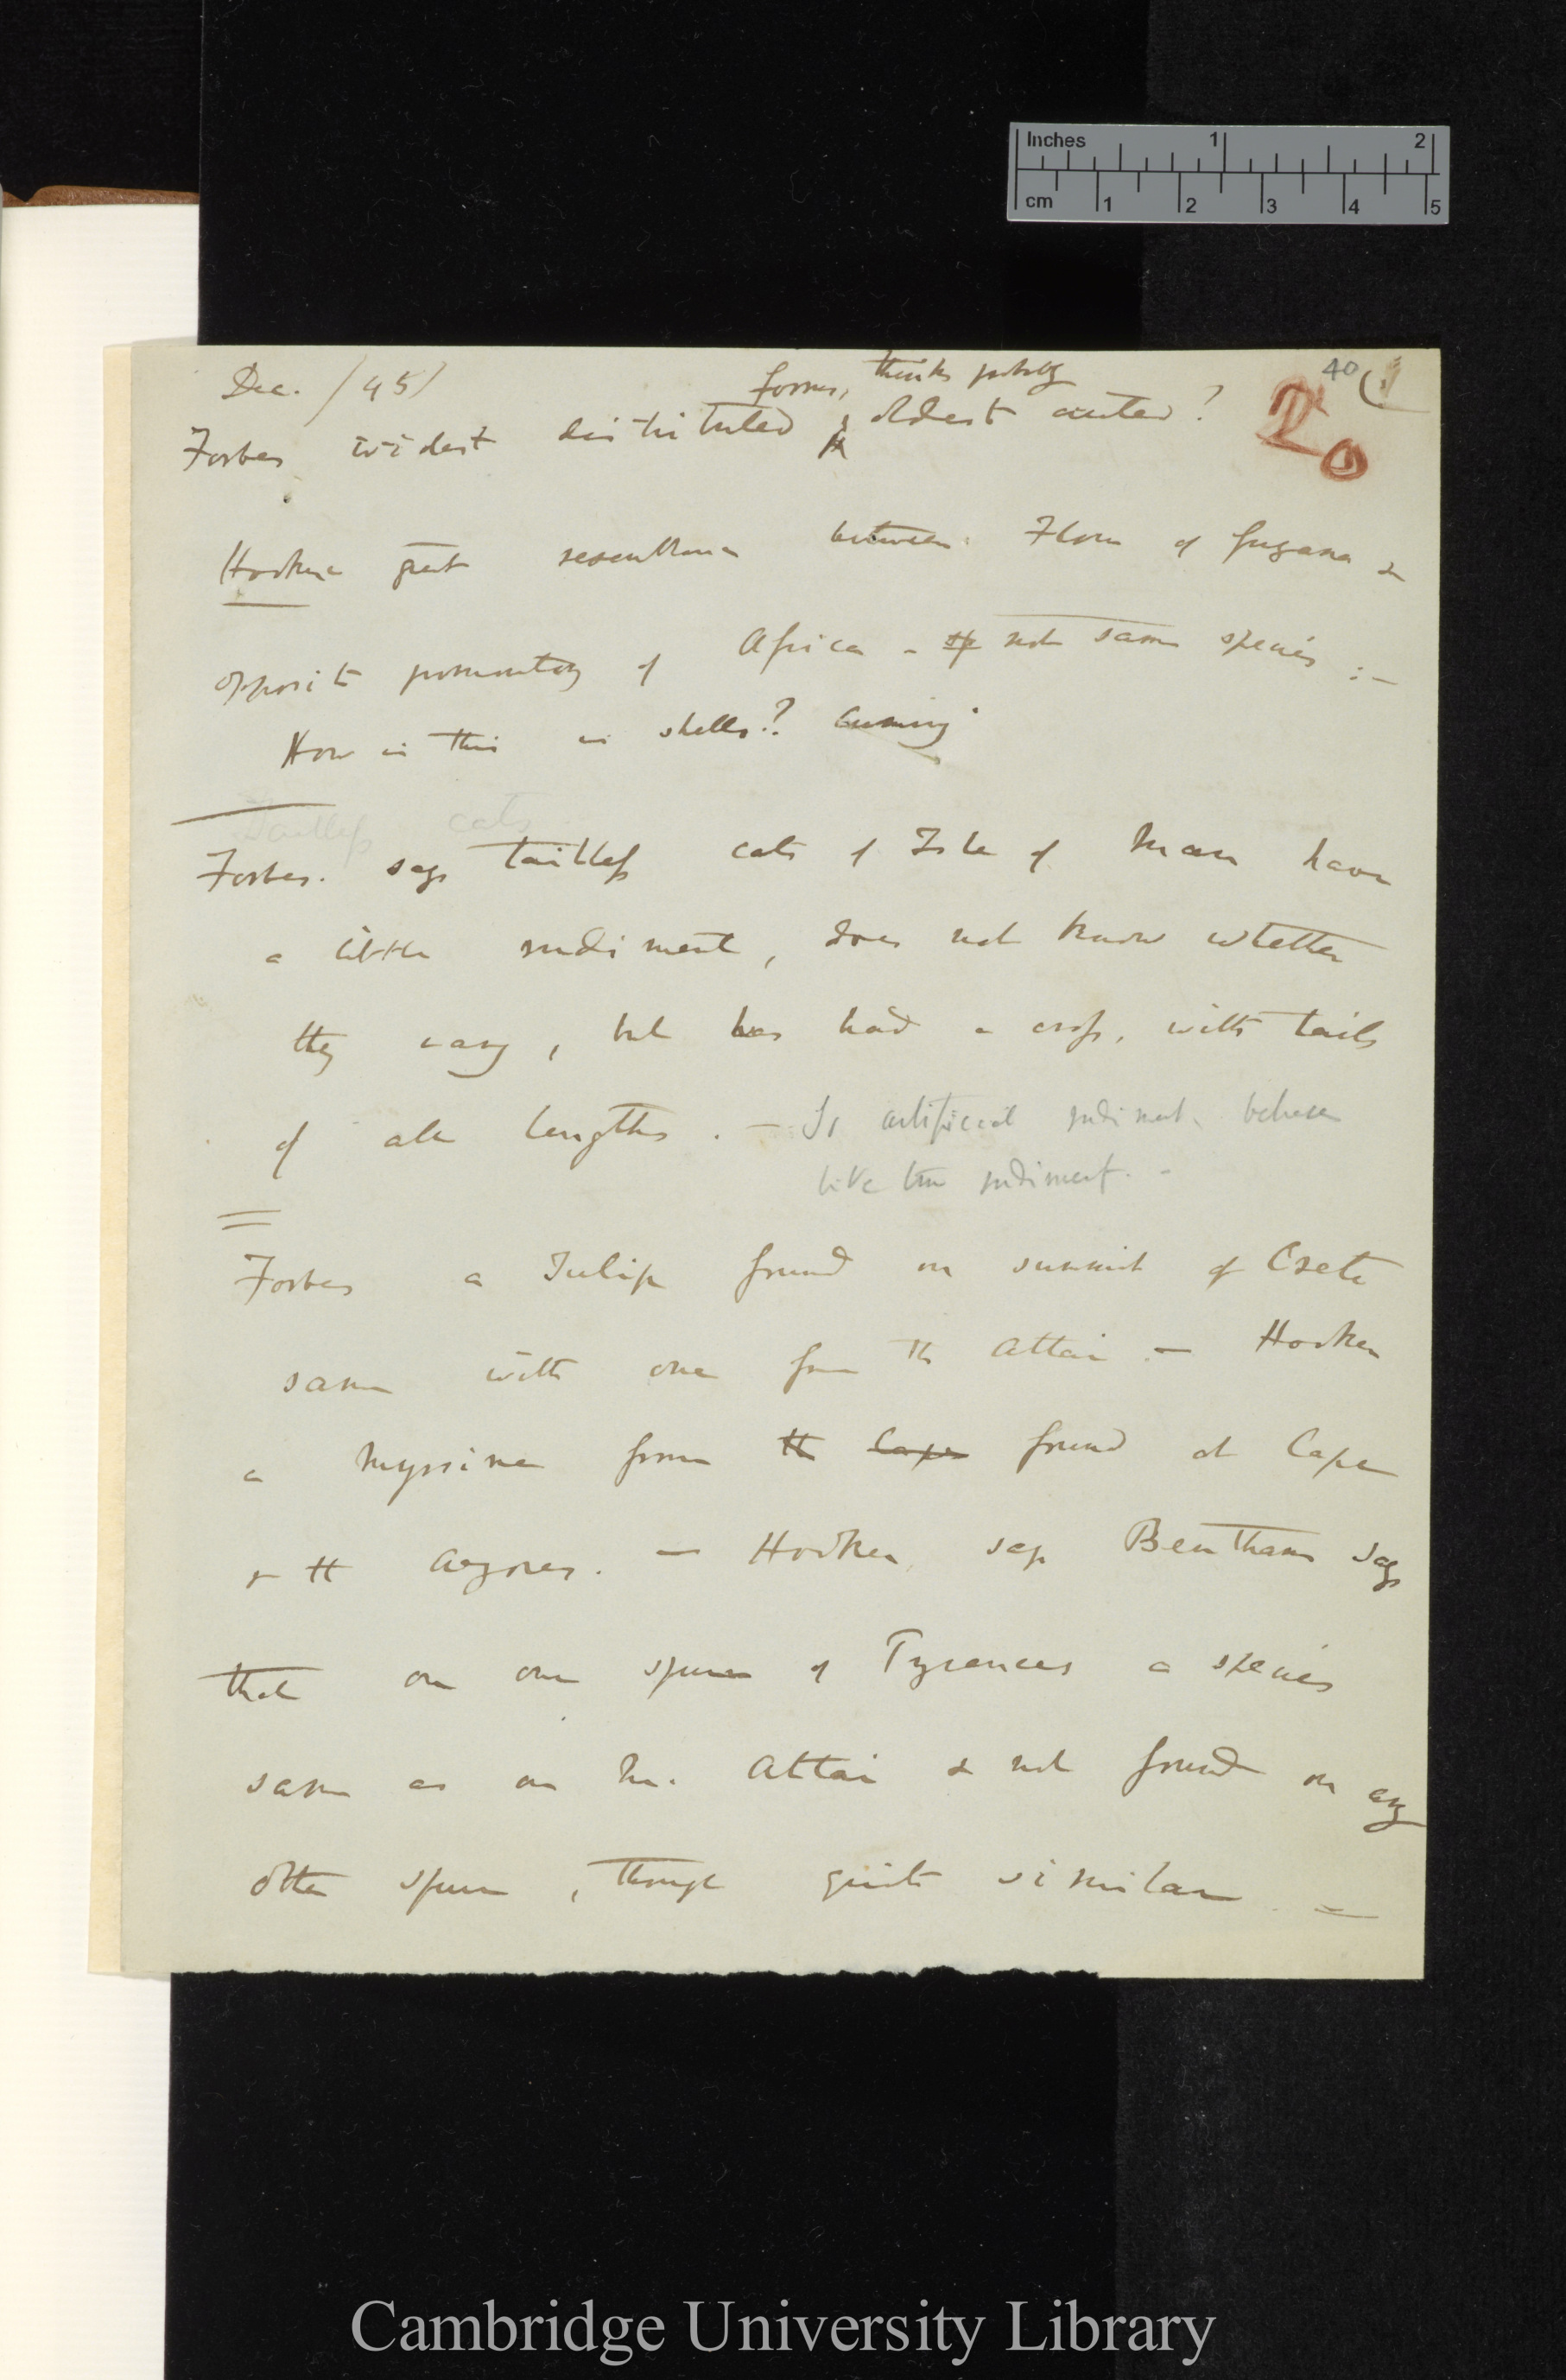 Inches 1 2
cm 1 2 3 4 5
40 (1
Dec. /45/
forms, thinks probably
Forbes widest distributed & oldest centres?
20
Hooker great resemblance between Flora of Guyana &
opposite promontory of Africa - not same species :—
How is this in shells? Cuming
Tailless cats
Forbes. says tailless cats of Isle of Man have
a little rudiment, does not know whether
they vary, but has had a cross, with tails
of all lengths. — Is artificial rudiment behave
like true rudiment. -
Forbes a Tulip found on summit of Crete
same with one from the Altai — Hooker
a Myrsine from the Cape found at Cape
& the Azores. — Hooker says Bentham says
that on one spur of Pyrenees a species
same as on M. Altai & not found on any
other spur, though quite similar —
Cambridge University Library